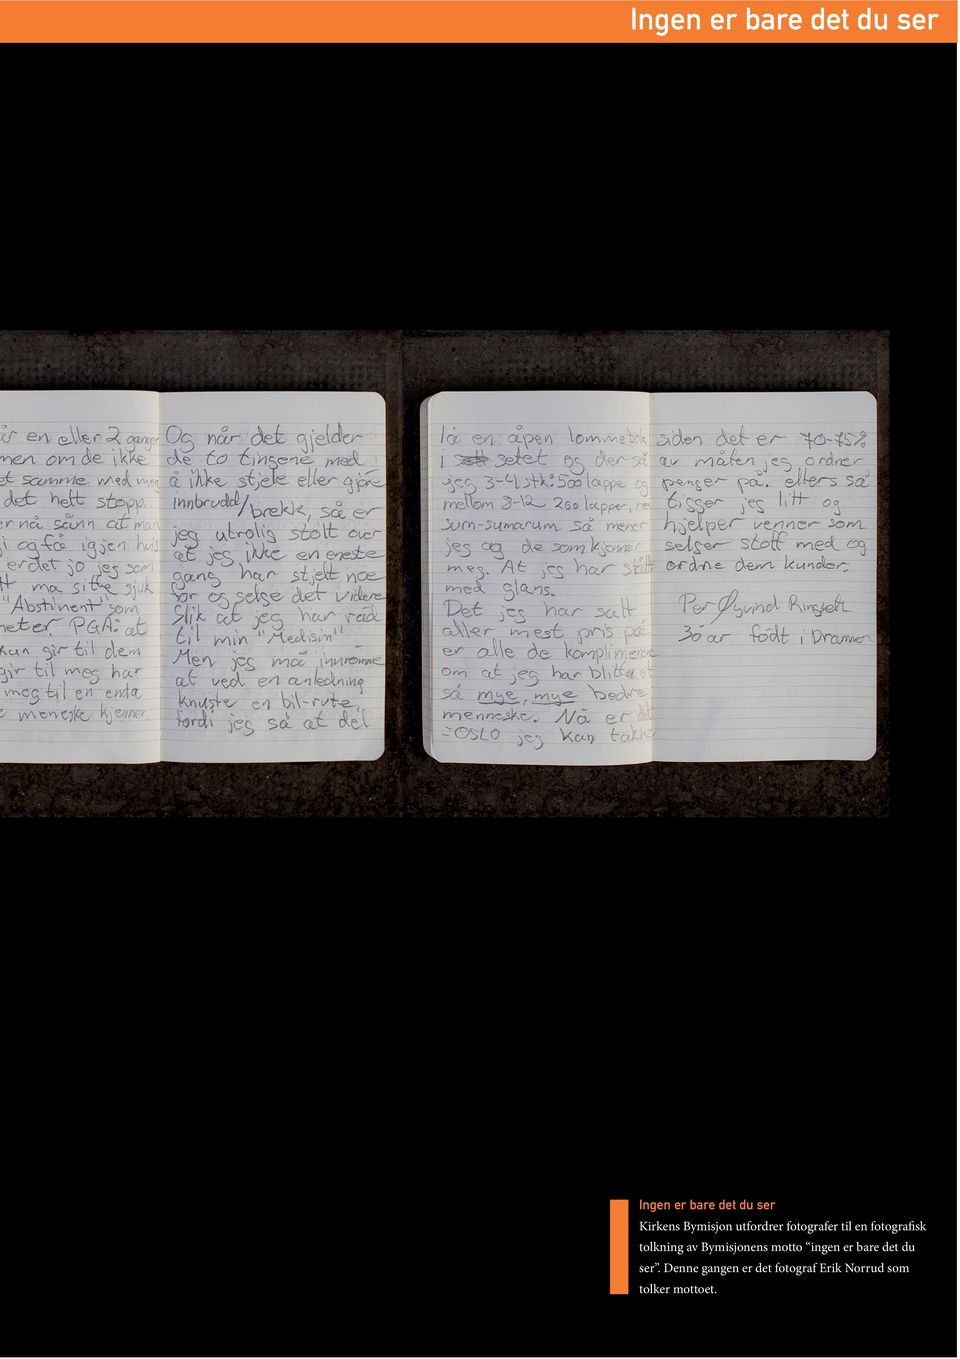 Ingen er bare det du ser
år en eller 2 ganger
men om de ikke
et samme med meg
det helt stopp.
er nå sånn at man
og få igjen hvis
er det jo jeg som
må sitte sjuk
"Abstinent" som
PGA: at
kun gir til dem
gir til meg har
meg til en enda
meneske kjenner.
Og når det gjelder
de to tingene med
å ikke stjele eller gjøre
innbrudd/brekk, så er
jeg utrolig stolt over
at jeg ikke en eneste
gang har stjelt noe
for og selge det videre
Slik at jeg har råd
til min "Medisin"
Men jeg må innrømme
at ved en anledning
knuste en bil-rute,
fordi jeg så at del
lå en åpen lommebok
i setet og der så
jeg 3-4 stk: 500 lappe og
mellom 8-12 200 lapper, men
sum-sumarum så mener
jeg og de som kjenner
meg. At jeg har stått
med glans.
Det jeg har satt
aller mest pris på
er alle de komplimentene
om at jeg har blitt et
så mye, mye bedre
menneske. Nå er det
=OSLO jeg kan takke
siden det er 70-75%
av måten jeg ordner
penger på. ellers så
tigger jeg litt og
hjelper venner som
selger stoff med og
ordne dem kunder.
Per Øyvind Ringseth
30 år født i Drammen
Ingen er bare det du ser
Kirkens Bymisjon utfordrer fotografer til en fotografisk
tolkning av Bymisjonens motto “ingen er bare det du
ser”. Denne gangen er det fotograf Erik Norrud som
tolker mottoet.